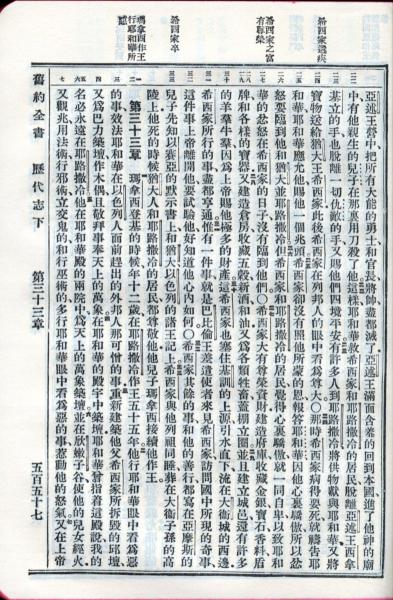 希西家遘疾
希西家之富有尊榮
希西家卒
瑪拿西作王行耶和華所惡
亞述王營中把所有大能的勇士和官長將帥盡都滅了亞述王滿面含羞的回到本國進了他神的廟
中有他親生的兒子在那裏用刀殺了他這樣耶和華救希西家和耶路撒冷的居民脫離亞述王西拿
基立的手也脫離一切仇敵的手又賜他們四境平安有許多人到耶路撒冷將供物獻與耶和華又將
寶物送給猶大王希西家此後希西家在列邦人的眼中看爲尊大○那時希西家病得要死就禱告耶
和華耶和華應允他賜他一個兆頭希西家卻沒有照他所蒙的恩報答耶和華因他心裏驕傲所以忿
怒要臨到他和猶大並耶路撒冷但希西家和耶路撒冷的居民覺得心裏驕傲就一同自卑以致耶和
華的忿怒在希西家的日子沒有臨到他們○希西家大有尊榮資財建造府庫收藏金銀寶石香料盾
牌和各樣的寶器又建造倉房收藏五穀新酒和油又爲各類牲畜蓋棚立圈並且建立城邑還有許多
的羊羣牛羣因爲上帝賜他極多的財產這希西家也塞住基訓的上源引水直下流在大衞城的西邊
希西家所行的事盡都亨通惟有一件事就是巴比倫王差遣使者來見希西家訪問國中所現的奇事
這件事上帝離開他要試驗他好知道他心內如何○希西家其餘的事和他的善行都寫在亞摩斯的
兒子先知以賽亞的默示書上和猶大以色列的諸王記上希西家與他列祖同睡葬在大衞子孫的高
陵上他死的時候猶大人和耶路撒冷的居民都尊敬他他兒子瑪拿西接續他作王
第三十三章 瑪拿西登基的時候年十二歲在耶路撒冷作王五十五年他行耶和華眼中看爲惡
的事效法耶和華在以色列人面前趕出的外邦人那可憎的事重新建築他父希西家所拆毀的邱壇
又爲巴力築壇作木偶且敬拜事奉天上的萬象在耶和華的殿宇中築壇耶和華曾指着這殿說我的
名必永遠在耶路撒冷他在耶和華殿的兩院中爲天上的萬象築壇並在欣嫩子谷使他的兒女經火
又觀兆用法術行邪術立交鬼的和行巫術的多行耶和華眼中看爲惡的事惹動他的怒氣又在上帝
舊約全書 歷代志下 第三十三章 五百五十七